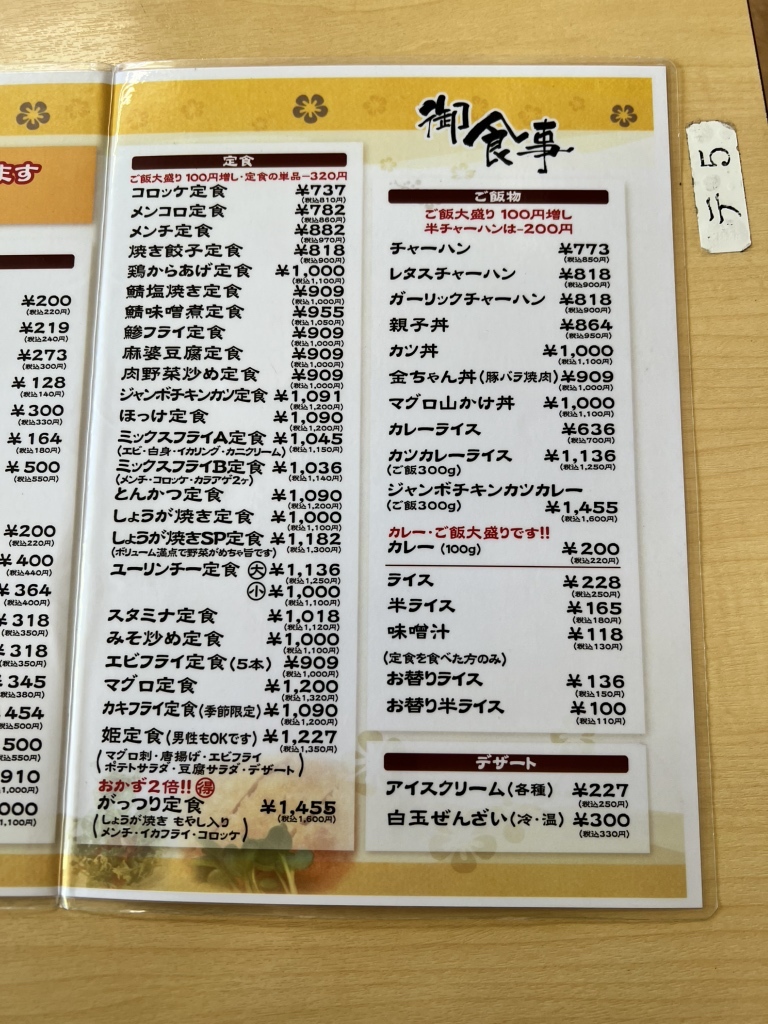 ます
¥200
(税込220円)
¥219
(税込240円)
¥273
(税込300円)
¥128
(税込140円)
¥300
(税込330円)
¥164
(税込180円)
¥500
(税込550円)
¥200
(税込220円)
¥400
(税込440円)
¥364
(税込400円)
¥318
(税込350円)
¥318
(税込350円)
¥345
(税込380円)
454
(税込500円)
500
(税込550円)
910
(税込1,000円)
000
(税込1,100円)
定食
ご飯大盛り100円増し・定食の単品−320円
コロッケ定食 ¥737
(税込810円)
メンコロ定食 ¥782
(税込860円)
メンチ定食 ¥882
(税込970円)
焼き餃子定食 ¥818
(税込900円)
鶏からあげ定食 ¥1,000
(税込1,100円)
鯖塩焼き定食 ¥909
(税込1,000円)
鯖味噌煮定食 ¥955
(税込1,050円)
鯵フライ定食 ¥909
(税込1,000円)
麻婆豆腐定食 ¥909
(税込1,000円)
肉野菜炒め定食 ¥909
(税込1,000円)
ジャンボチキンカツ定食 ¥1,091
(税込1,200円)
ほっけ定食 ¥1,090
(税込1,200円)
ミックスフライA定食 ¥1,045
(エビ・白身・イカリング・カニクリーム) (税込1,150円)
ミックスフライB定食 ¥1,036
(メンチ・コロッケ・カラアゲ2ヶ) (税込1,140円)
とんかつ定食 ¥1,090
(税込1,200円)
しょうが焼き定食 ¥1,000
(税込1,100円)
しょうが焼きSP定食 ¥1,182
(ボリューム満点で野菜がめちゃ旨です) (税込1,300円)
ユーリンチー定食 大 ¥1,136
(税込1,250円)
小 ¥1,000
(税込1,100円)
スタミナ定食 ¥1,018
(税込1,120円)
みそ炒め定食 ¥1,000
(税込1,100円)
エビフライ定食(5本) ¥909
(税込1,000円)
マグロ定食 ¥1,200
(税込1,320円)
カキフライ定食(季節限定) ¥1,090
(税込1,200円)
姫定食(男性もOKです) ¥1,227
(税込1,350円)
(マグロ刺・唐揚げ・エビフライ
ポテトサラダ・豆腐サラダ・デザート)
おかず2倍!! 得
がっつり定食 ¥1,455
(税込1,600円)
(しょうが焼き もやし入り
メンチ・イカフライ・コロッケ)
御食事
ご飯物
ご飯大盛り100円増し
半チャーハンは−200円
チャーハン ¥773
(税込850円)
レタスチャーハン ¥818
(税込900円)
ガーリックチャーハン ¥818
(税込900円)
親子丼 ¥864
(税込950円)
カツ丼 ¥1,000
(税込1,100円)
金ちゃん丼(豚バラ焼肉) ¥909
(税込1,000円)
マグロ山かけ丼 ¥1,000
(税込1,100円)
カレーライス ¥636
(税込700円)
カツカレーライス ¥1,136
(ご飯300g) (税込1,250円)
ジャンボチキンカツカレー
(ご飯300g) ¥1,455
(税込1,600円)
カレー・ご飯大盛りです!!
カレー(100g) ¥200
(税込220円)
ライス ¥228
(税込250円)
半ライス ¥165
(税込180円)
味噌汁 ¥118
(税込130円)
(定食を食べた方のみ)
お替りライス ¥136
(税込150円)
お替り半ライス ¥100
(税込110円)
デザート
アイスクリーム(各種) ¥227
(税込250円)
白玉ぜんざい(冷・温) ¥300
(税込330円)
テ5